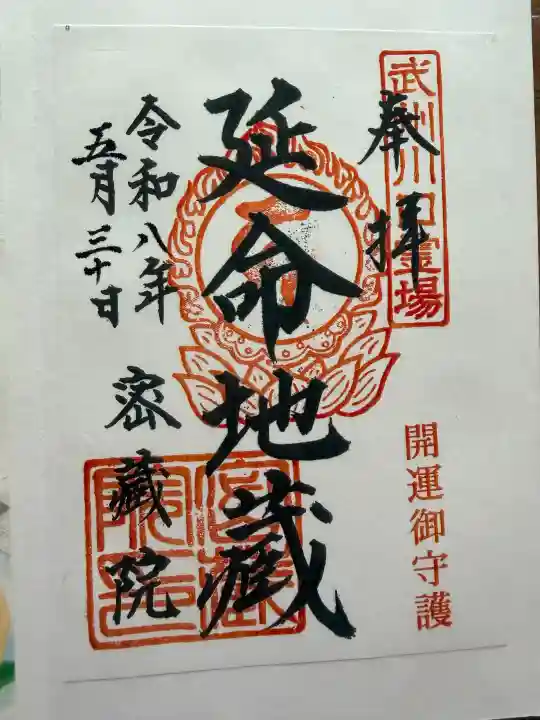 武州川口霊場
奉拝
開運御守護
延命地蔵
令和八年
五月三十日
密蔵院